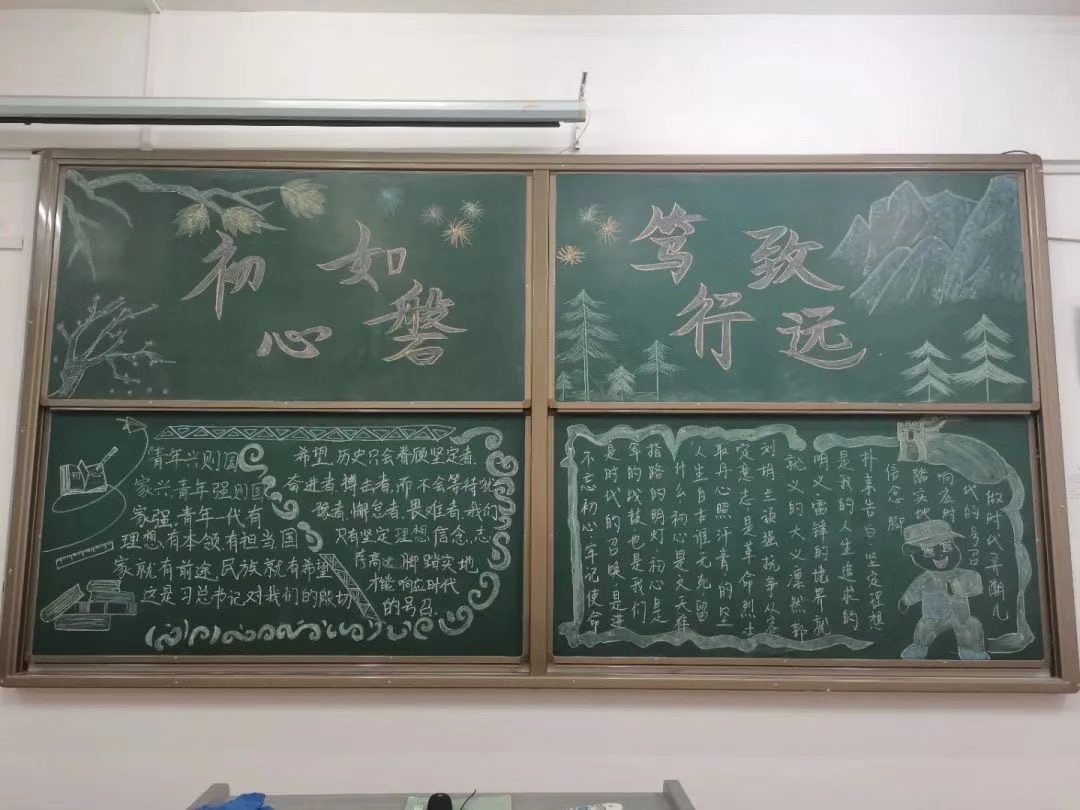 初心如磐
笃行致远
青年兴则国
家兴,青年强则国
家强,青年一代有
理想,有本领,有担当,国
家就有前途,民族就有希望
这是习总书记对我们的殷切
希望,历史只会眷顾坚定者、
奋进者、搏击者,而不会等待犹
豫者、懈怠者、畏难者,我们
只有坚定理想、信念,志
存高远,脚踏实地
才能响应时代
的号召.
不忘初心,牢记使命
是时代的召唤是进
军的战鼓也是我们
指路的明灯,初心是
什么,初心是文天祥
人生自古谁无死留
取丹心照汗青的坚
定意志是革命烈士
刘胡兰顽强抗争从容
就义的大义凛然,郭
明义、雷锋的境界就
是我的人生追求的
朴素告白,坚定理想
信念,脚
踏实地
响应时
代的号召
做时代弄潮儿